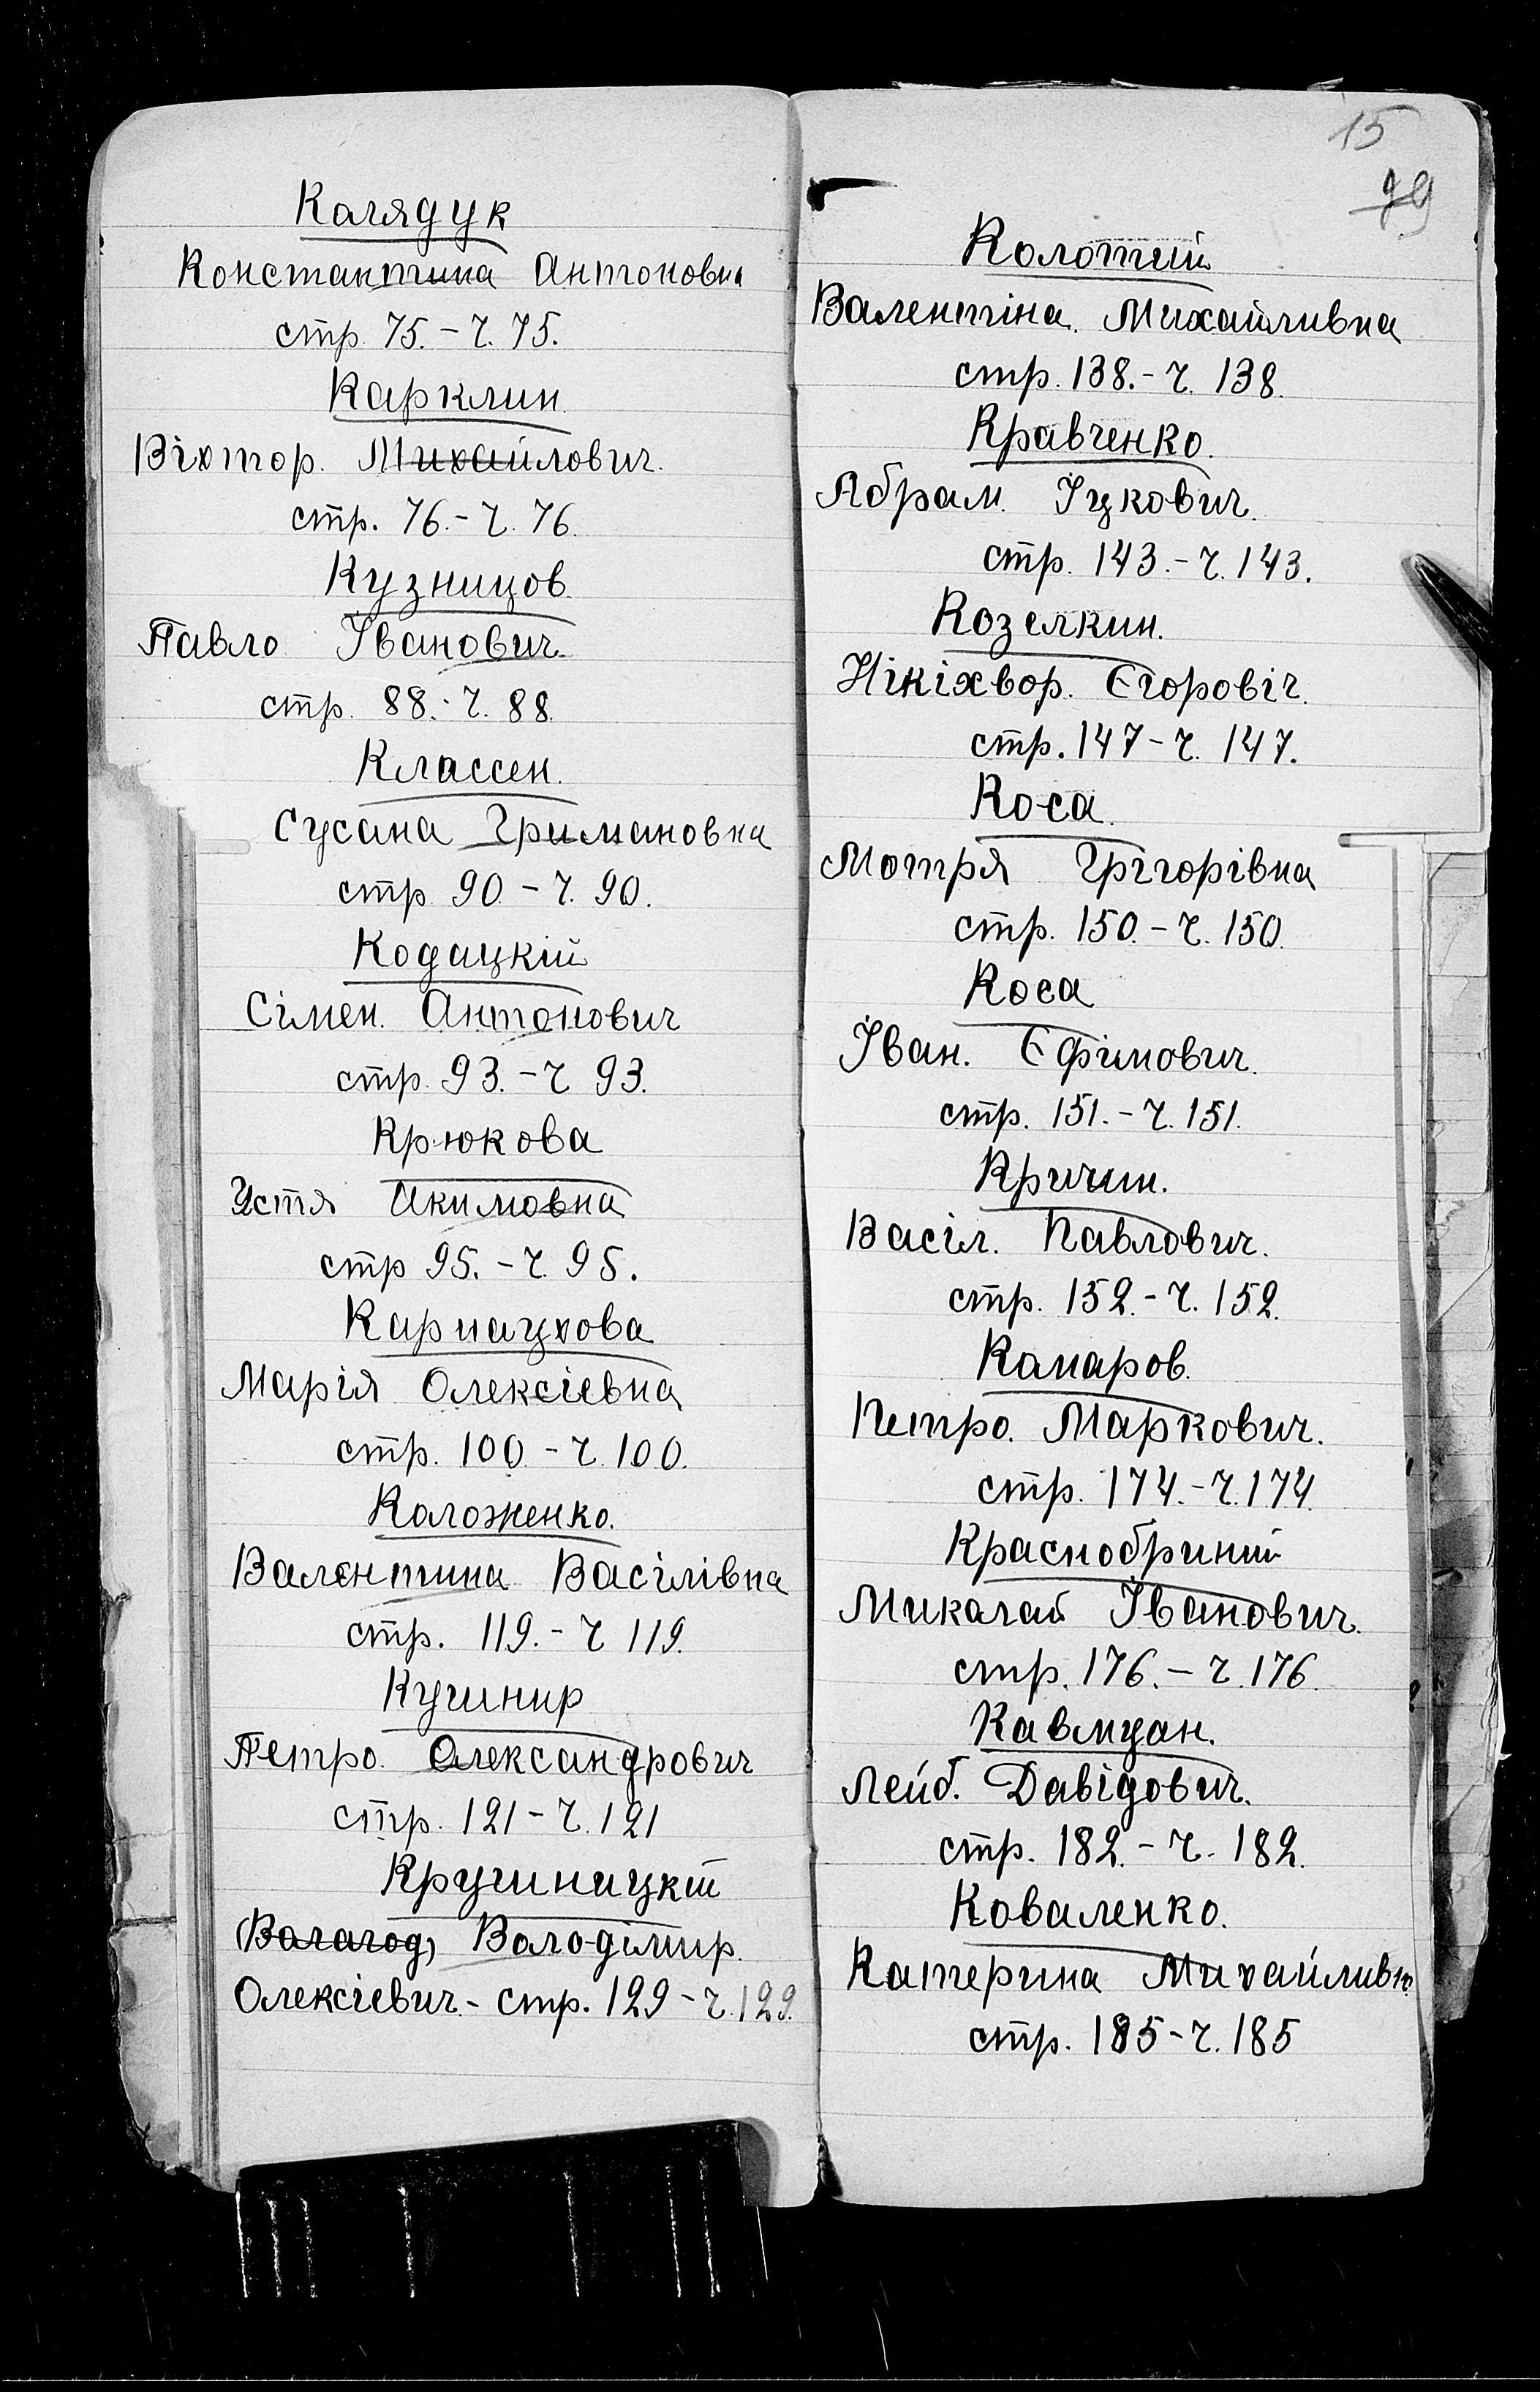 Калядук
Константина Антоновна
стр. 75. - ч. 75.
Карклин
Віхтор. Михайлович.
стр. 76. - ч. 76.
Кузницов.
Павло Іванович.
стр. 88. - ч. 88.
Классен.
Сусана Гримановна
стр. 90 - ч. 90.
Кодацкій
Сімен. Антонович
стр. 93. - ч 93.
Крюкова
Устя Акимовна
стр 95. - ч. 95.
Карнаухова
Марія Олексіевна
стр. 100 - ч. 100.
Каложенко.
Валентина Васілівна
стр. 119. - ч 119.
Кушнир
Петро. Олександрович
стр. 121 - ч. 121
Крушницкій
(Валагод) Володімир.
Олексіевич. - стр. 129 - ч. 129.
15
79
Колотий
Валентіна. Михайливна
стр. 138. - ч. 138.
Кравченко.
Абрам. Іцкович.
стр. 143. - ч. 143.
Козелкин.
Нікіхвор. Єгоровіч.
стр. 147 - ч. 147.
Коса.
Мотря Грігорівна
стр. 150. - ч. 150.
Коса
Іван. Єфімович.
стр. 151. - ч. 151.
Кричин.
Васіл. Павлович.
стр. 152. - ч. 152.
Камаров.
Петро. Маркович.
стр. 174. - ч. 174.
Краснобриний
Микалай Іванович.
стр. 176. - ч. 176.
Кавмцан.
Лейб. Давідович.
стр. 182. - ч. 182.
Коваленко.
Катерина Михайливн.
стр. 185 - ч. 185